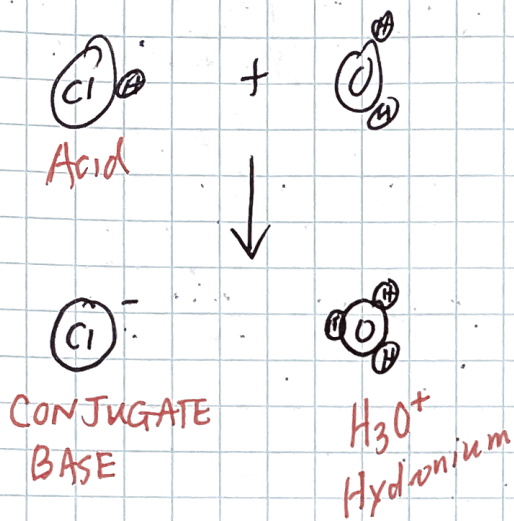 Cl H + O H H
Acid
Cl - H O H H
CONJUGATE
BASE
H3O+
Hydronium